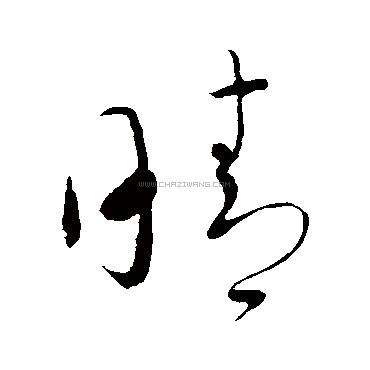 晴
WWW.CHAZIWANG.COM